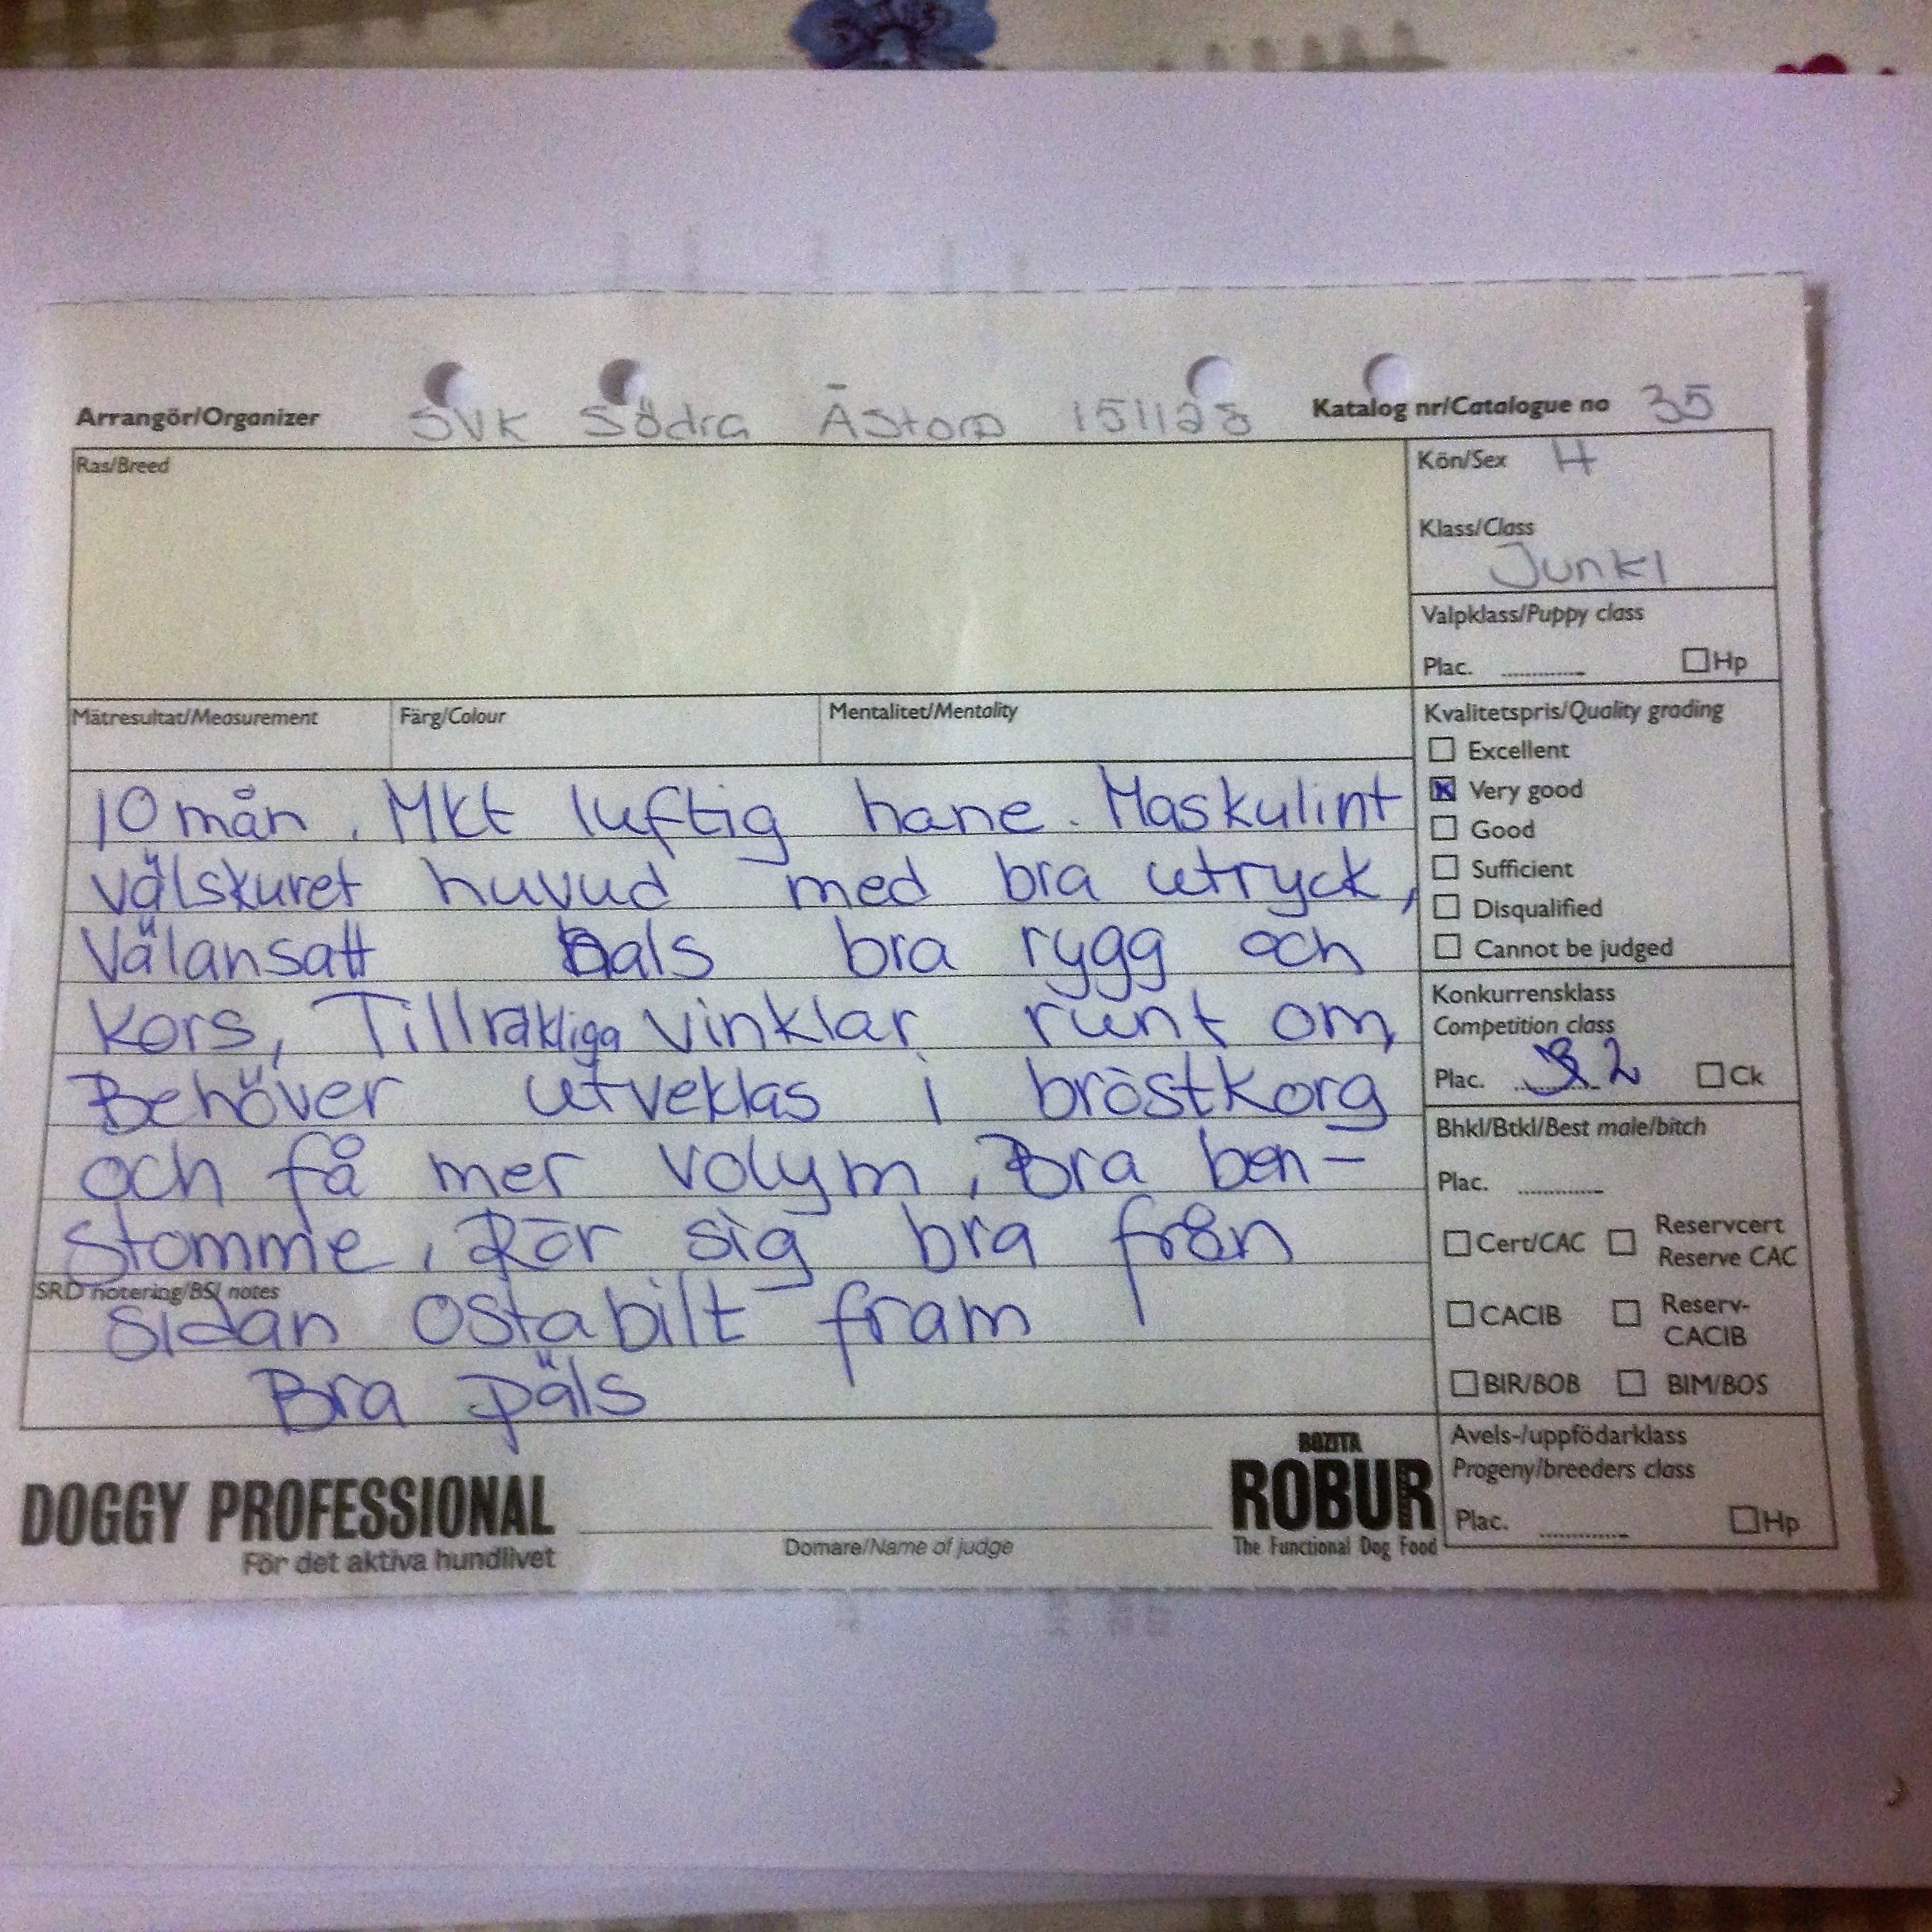 Arrangör/Organizer SVK Södra Åstorp 151128 Katalog nr/Catalogue no 35
Ras/Breed
Kön/Sex H
Klass/Class
Junkl
Valpklass/Puppy class
Plac. ............ Hp
Mätresultat/Measurement Färg/Colour Mentalitet/Mentality
10 mån. Mkt luftig hane. Maskulint
välskuret huvud med bra utryck,
Välansatt hals bra rygg och
kors, Tillräkliga vinklar runt om,
Behöver utveklas i bröstkorg
och få mer volym, Bra ben-
stomme, Rör sig bra från
SRD notering/BSI notes
sidan ostabilt fram
Bra päls
Kvalitetspris/Quality grading
Excellent
Very good
Good
Sufficient
Disqualified
Cannot be judged
Konkurrensklass
Competition class
Plac. 2 Ck
Bhkl/Btkl/Best male/bitch
Plac. ............
Cert/CAC Reservcert
Reserve CAC
CACIB Reserv-
CACIB
BIR/BOB BIM/BOS
Avels-/uppfödarklass
Progeny/breeders class
Plac. ............ Hp
DOGGY PROFESSIONAL
För det aktiva hundlivet
Domare/Name of judge
BOZITA
ROBUR
The Functional Dog Food